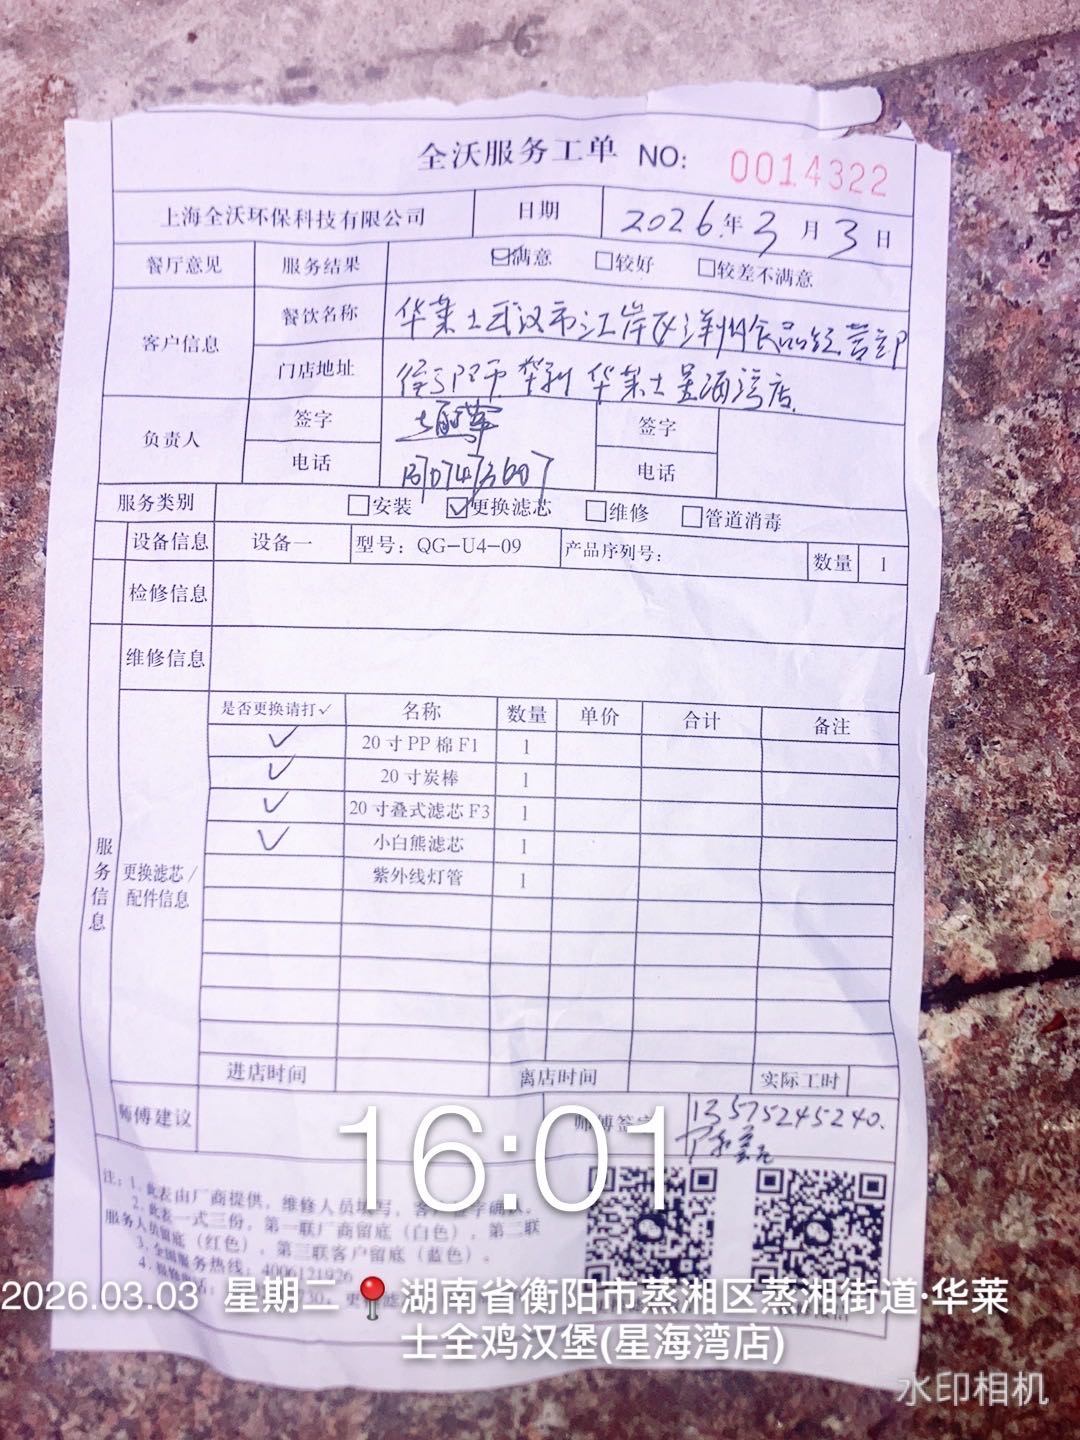 全沃服务工单 NO: 0014322
上海全沃环保科技有限公司 日期 2026.年3月3日
餐厅意见 服务结果 ☑满意 □较好 □较差不满意
客户信息 餐饮名称 华莱士武汉市江岸区洋州食品经营部
门店地址 华莱士星海湾店
负责人 签字 签字
电话 电话
服务类别 □安装 ☑更换滤芯 □维修 □管道消毒
设备信息 设备一 型号：QG-U4-09 产品序列号： 数量 1
检修信息
维修信息
服务信息
更换滤芯/配件信息
是否更换请打✓ 名称 数量 单价 合计 备注
✓ 20寸PP棉F1 1
✓ 20寸炭棒 1
✓ 20寸叠式滤芯F3 1
✓ 小白熊滤芯 1
紫外线灯管 1
进店时间 离店时间 实际工时
师傅建议 师傅签字 13575245240.
16:01
注：1、此表由厂商提供，维修人员填写，客户签字确认。
2、此表一式三份，第一联厂商留底（白色），第二联
服务人员留底（红色），第三联客户留底（蓝色）。
3、全国服务热线：4006121926
2026.03.03 星期二 湖南省衡阳市蒸湘区蒸湘街道·华莱
士全鸡汉堡(星海湾店)
水印相机